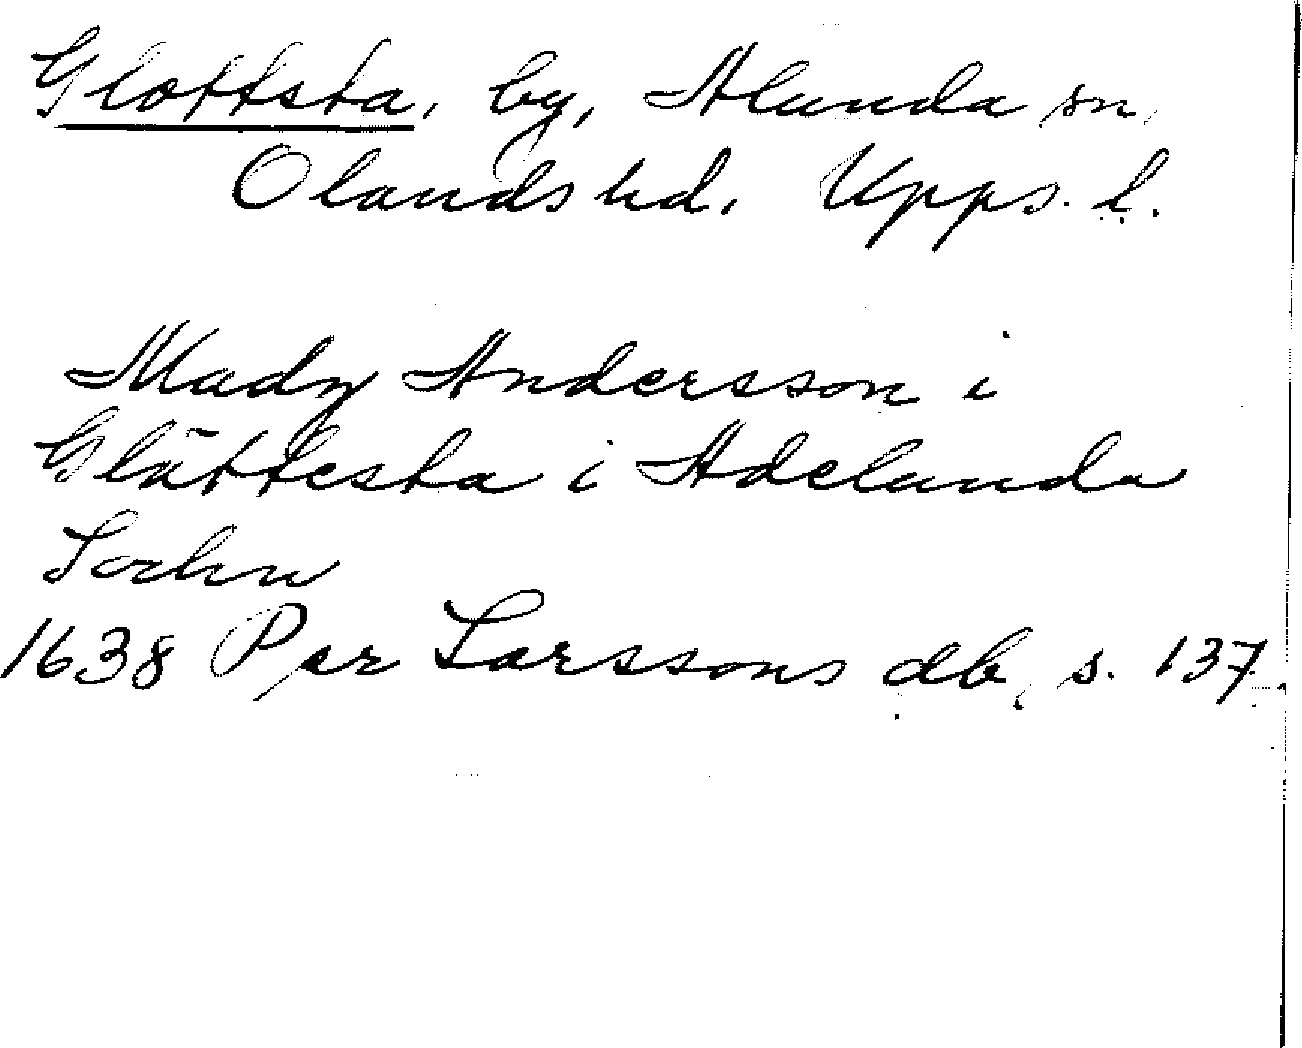 Glottsta, by, Alunda sn,
Olands hd. Upps. l.
Madz Andersson i
Glåttesta i Adelunda
Sochn
1638 Per Larssons db, s. 137